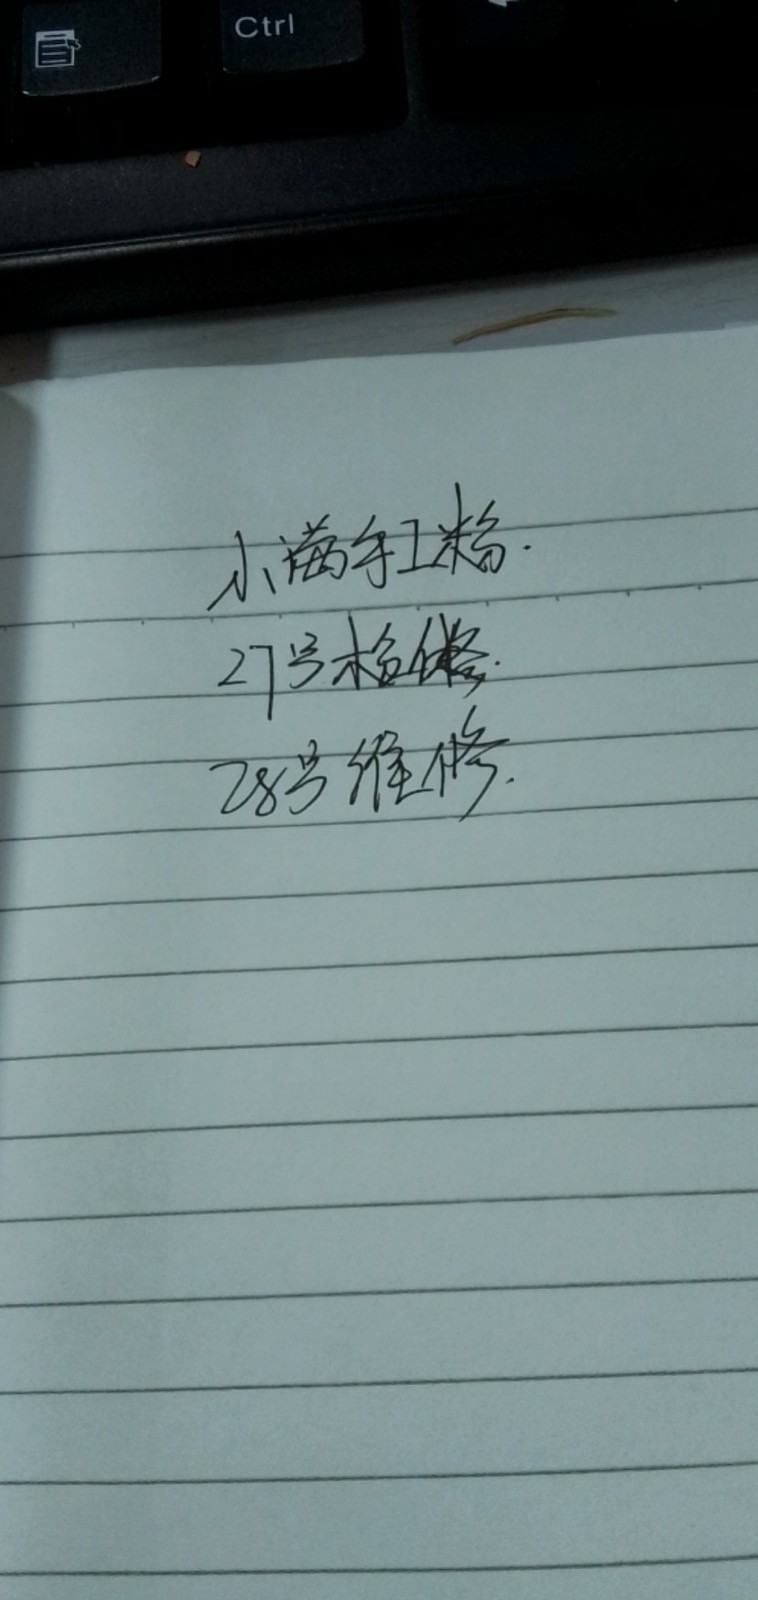 Ctrl
小满手工粉.
27号检修.
28号维修.